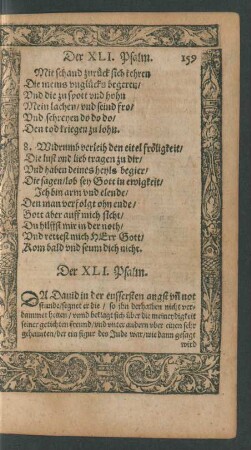 Der XLI. Psalm. 159
Mit schand zurück sich kehren
Die meins vnglücks begeren/
Vnd die zu spott vnd hohn
Mein lachen/ vnd seind fro/
Vnd schreyen do do do/
Den tod kriegen zu lohn.
8. Widrumb verleih den eitel fröligkeit/
Die lust vnd lieb tragen zu dir/
Vnd haben deines heyls begier/
Die sagen/ lob sey Gott in ewigkeit/
Ich bin arm vnd elende/
Den man verfolgt ohn ende/
Gott aber auff mich sicht/
Du hilffst mir in der noth/
Vnd rettest mich HErr Gott/
Kom bald vnd seum dich nicht.
Der XLI. Psalm.
DA Dauid in der eussersten angst vñ not
stunde/ segnet er die / so ihn derhalben nicht ver-
dammet hetten/ vnnd beklagt sich über die meineydigkeit
seiner gedichten freund/ vnd vnter andern vber einen sehr
geheimten/ der ein figur des Jude war/ wie dann gesagt
wird